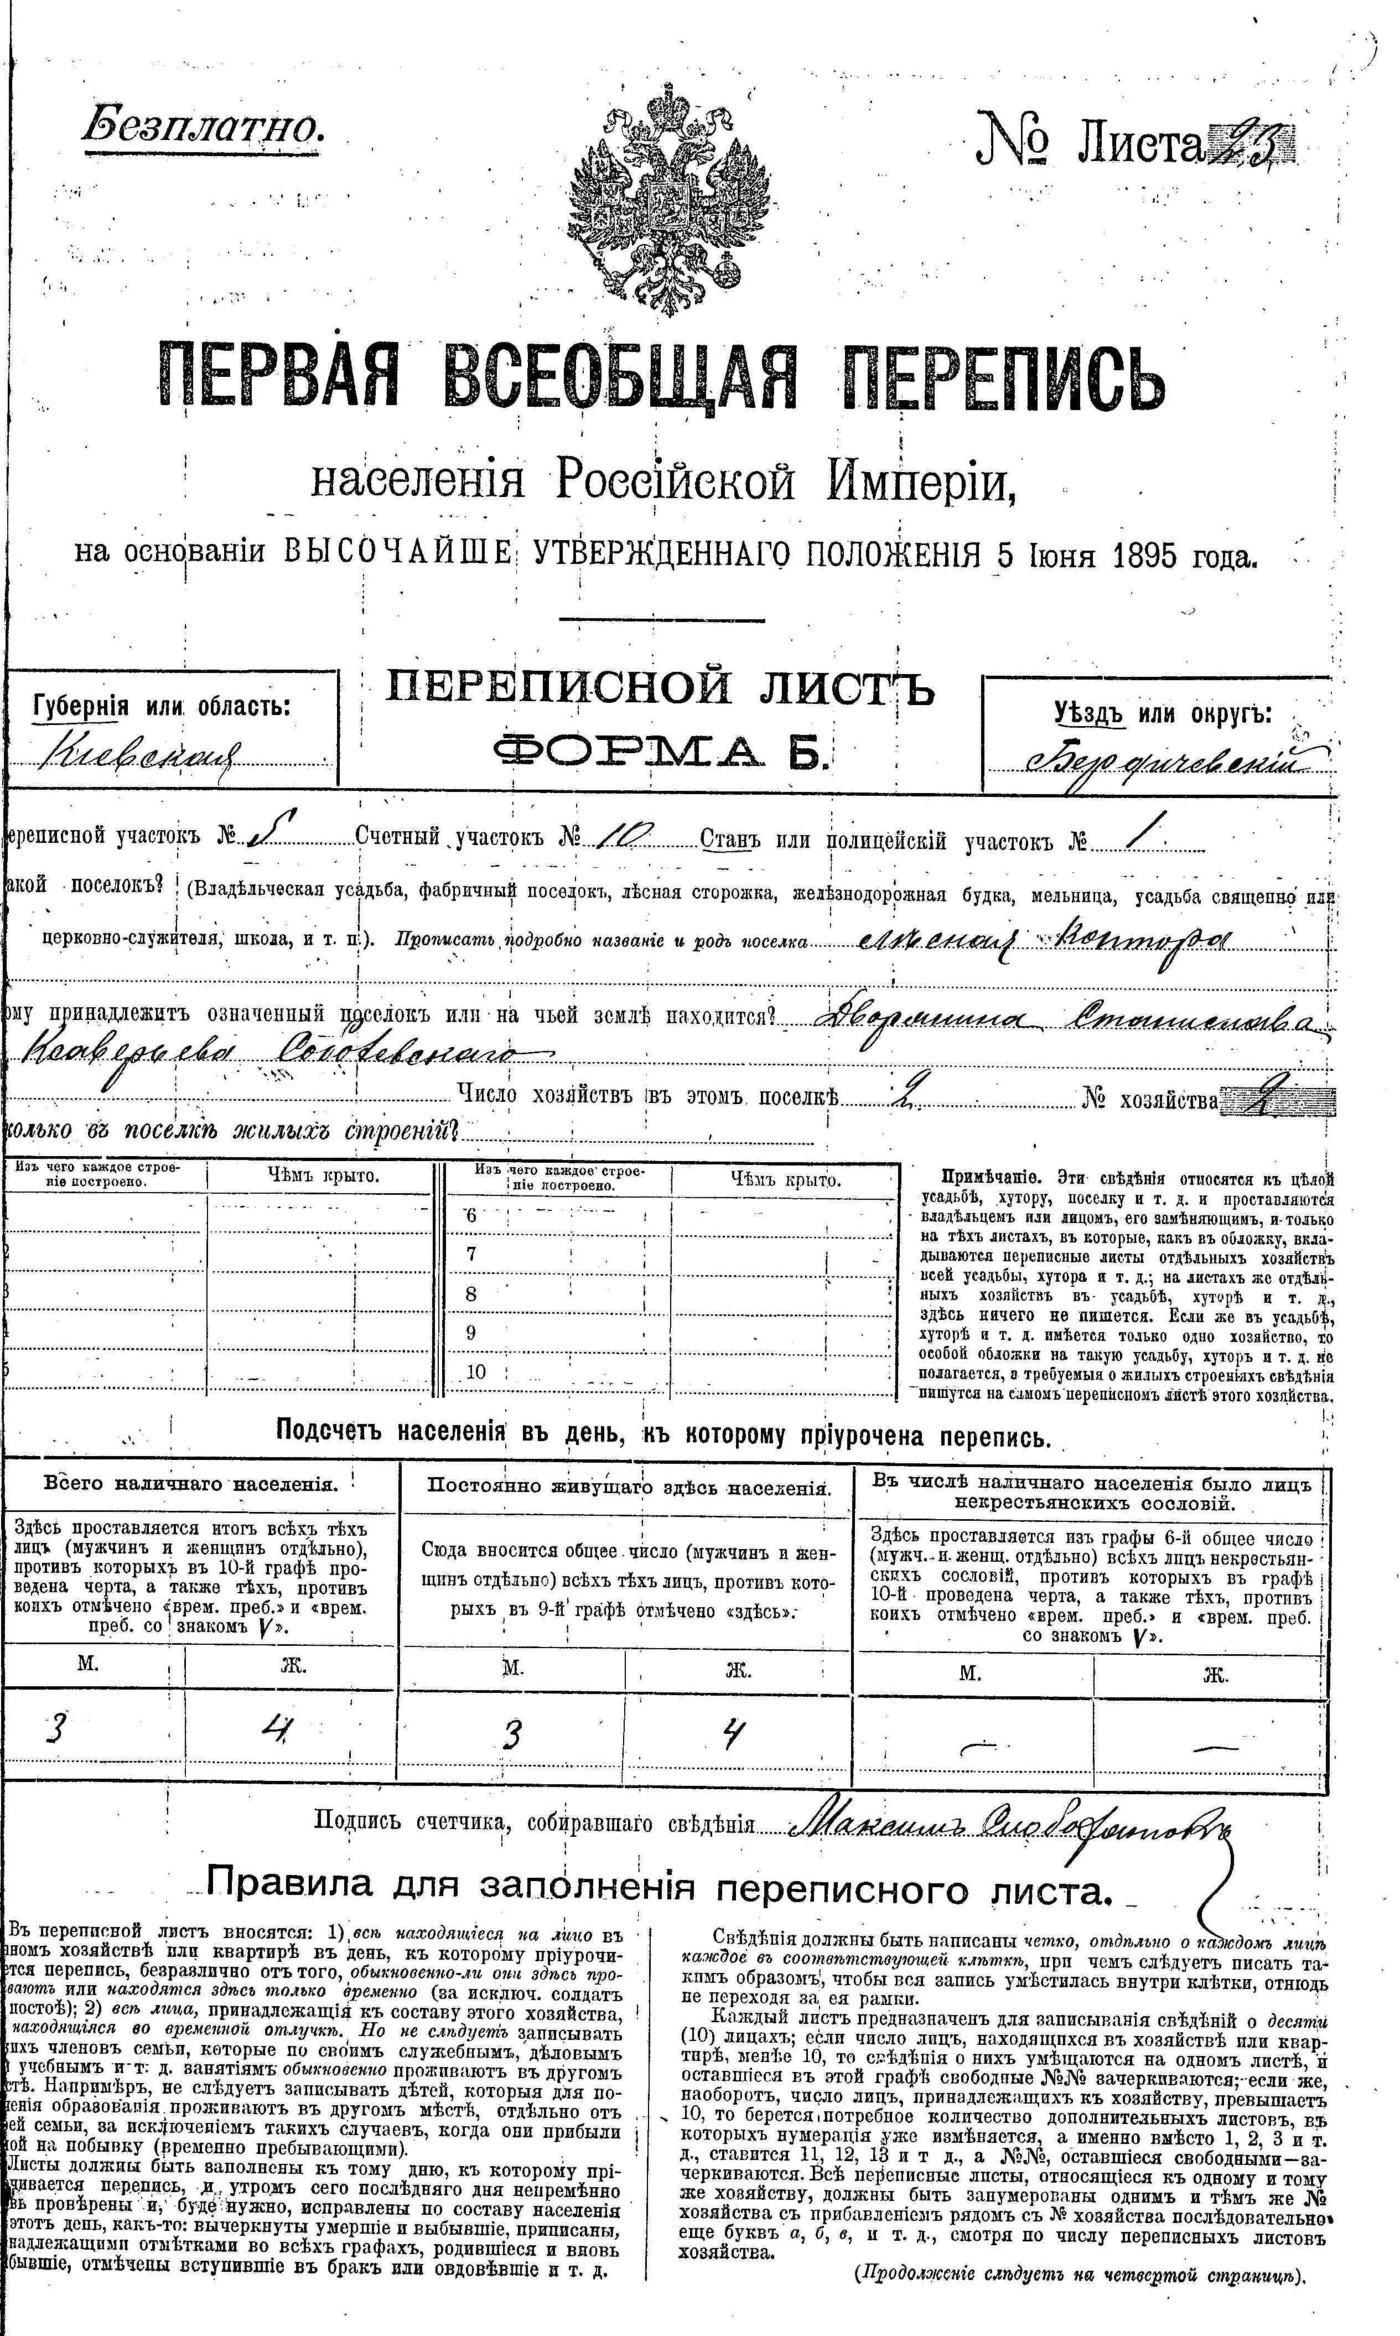 Безплатно.
№ Листа 23
ПЕРВАЯ ВСЕОБЩАЯ ПЕРЕПИСЬ
населенія Россійской Имперіи,
на основаніи ВЫСОЧАЙШЕ УТВЕРЖДЕННАГО ПОЛОЖЕНІЯ 5 Іюня 1895 года.
ПЕРЕПИСНОЙ ЛИСТЪ
ФОРМА Б.
Губернія или область:
Кіевская
Уѣздъ или округъ:
Бердичевскій
ереписной участокъ № 5 Счетный участокъ № 10 Станъ или полицейскій участокъ № 1
акой поселокъ? (Владѣльческая усадьба, фабричный поселокъ, лѣсная сторожка, желѣзнодорожная будка, мельница, усадьба священно или
церковно-служителя, школа, и т. п.). Прописать подробно названіе и родъ поселка лѣсная контора
ому принадлежитъ означенный поселокъ или на чьей землѣ находится? Дворянина Станислава
Ксаверьева
Число хозяйствъ въ этомъ поселкѣ 2 № хозяйства 2
колько въ поселкѣ жилыхъ строеній?
Изъ чего каждое строе-
ніе построено.
Чѣмъ крыто.
Изъ чего каждое строе-
ніе построено.
Чѣмъ крыто.
6
7
8
9
10
Примѣчаніе. Эти свѣдѣнія относятся къ цѣлой
усадьбѣ, хутору, поселку и т. д. и проставляются
владѣльцемъ или лицомъ, его замѣняющимъ, и только
на тѣхъ листахъ, въ которые, какъ въ обложку, вкла-
дываются переписные листы отдѣльныхъ хозяйствъ
всей усадьбы, хутора и т. д.; на листахъ же отдѣль-
ныхъ хозяйствъ въ усадьбѣ, хуторѣ и т. д.,
здѣсь ничего не пишется. Если же въ усадьбѣ,
хуторѣ и т. д. имѣется только одно хозяйство, то
особой обложки на такую усадьбу, хуторъ и т. д. не
полагается, а требуемыя о жилыхъ строеніяхъ свѣдѣнія
пишутся на самомъ переписномъ листѣ этого хозяйства.
Подсчетъ населенія въ день, къ которому пріурочена перепись.
Всего наличнаго населенія.
Здѣсь проставляется итогъ всѣхъ тѣхъ
лицъ (мужчинъ и женщинъ отдѣльно),
противъ которыхъ въ 10-й графѣ про-
ведена черта, а также тѣхъ, противъ
коихъ отмѣчено «врем. преб.» и «врем.
преб. со знакомъ V».
М. Ж.
3 4
Постоянно живущаго здѣсь населенія.
Сюда вносится общее число (мужчинъ и жен-
щинъ отдѣльно) всѣхъ тѣхъ лицъ, противъ кото-
рыхъ въ 9-й графѣ отмѣчено «здѣсь».
М. Ж.
3 4
Въ числѣ наличнаго населенія было лицъ
некрестьянскихъ сословій.
Здѣсь проставляется изъ графы 6-й общее число
(мужч. и женщ. отдѣльно) всѣхъ лицъ некрестьян-
скихъ сословій, противъ которыхъ въ графѣ
10-й проведена черта, а также тѣхъ, противъ
коихъ отмѣчено «врем. преб.» и «врем. преб.
со знакомъ V».
М. Ж.
— —
Подпись счетчика, собиравшаго свѣдѣнія Максимъ
Правила для заполненія переписного листа.
Въ переписной листъ вносятся: 1) всѣ находящіеся на лицо въ
номъ хозяйствѣ или квартирѣ въ день, къ которому пріурочи-
тся перепись, безразлично отъ того, обыкновенно-ли они здѣсь про-
вають или находятся здѣсь только временно (за исключ. солдатъ
постоѣ); 2) всѣ лица, принадлежащія къ составу этого хозяйства,
находящіяся во временной отлучкѣ. Но не слѣдуетъ записывать
ихъ членовъ семьи, которые по своимъ служебнымъ, дѣловымъ
учебнымъ и т. д. занятіямъ обыкновенно проживаютъ въ другомъ
стѣ. Напримѣръ, не слѣдуетъ записывать дѣтей, которыя для по-
ченія образованія проживаютъ въ другомъ мѣстѣ, отдѣльно отъ
ей семьи, за исключеніемъ такихъ случаевъ, когда они прибыли
ой на побывку (временно пребывающими).
Листы должны быть заполнены къ тому дню, къ которому прі-
чивается перепись, и утромъ сего послѣдняго дня непремѣнно
ть провѣрены и, буде нужно, исправлены по составу населенія
этотъ день, какъ-то: вычеркнуты умершіе и выбывшіе, приписаны,
надлежащими отмѣтками во всѣхъ графахъ, родившіеся и вновь
бывшіе, отмѣчены вступившіе въ бракъ или овдовѣвшіе и т. д.
Свѣдѣнія должны быть написаны четко, отдѣльно о каждомъ лицѣ
каждое въ соотвѣтствующей клѣткѣ, при чемъ слѣдуетъ писать та-
кимъ образомъ, чтобы вся запись умѣстилась внутри клѣтки, отнюдь
не переходя за ея рамки.
Каждый листъ предназначенъ для записыванія свѣдѣній о десяти
(10) лицахъ; если число лицъ, находящихся въ хозяйствѣ или квар-
тирѣ, менѣе 10, то свѣдѣнія о нихъ умѣщаются на одномъ листѣ, и
оставшіеся въ этой графѣ свободные №№ зачеркиваются; если же,
наоборотъ, число лицъ, принадлежащихъ къ хозяйству, превышаетъ
10, то берется потребное количество дополнительныхъ листовъ, въ
которыхъ нумерація уже измѣняется, а именно вмѣсто 1, 2, 3 и т.
д., ставится 11, 12, 13 и т д., а №№, оставшіеся свободными—за-
черкиваются. Всѣ переписные листы, относящіеся къ одному и тому
же хозяйству, должны быть занумерованы однимъ и тѣмъ же №
хозяйства съ прибавленіемъ рядомъ съ № хозяйства послѣдовательно
еще буквъ а, б, в, и т. д., смотря по числу переписныхъ листовъ
хозяйства.
(Продолженіе слѣдуетъ на четвертой страницѣ).